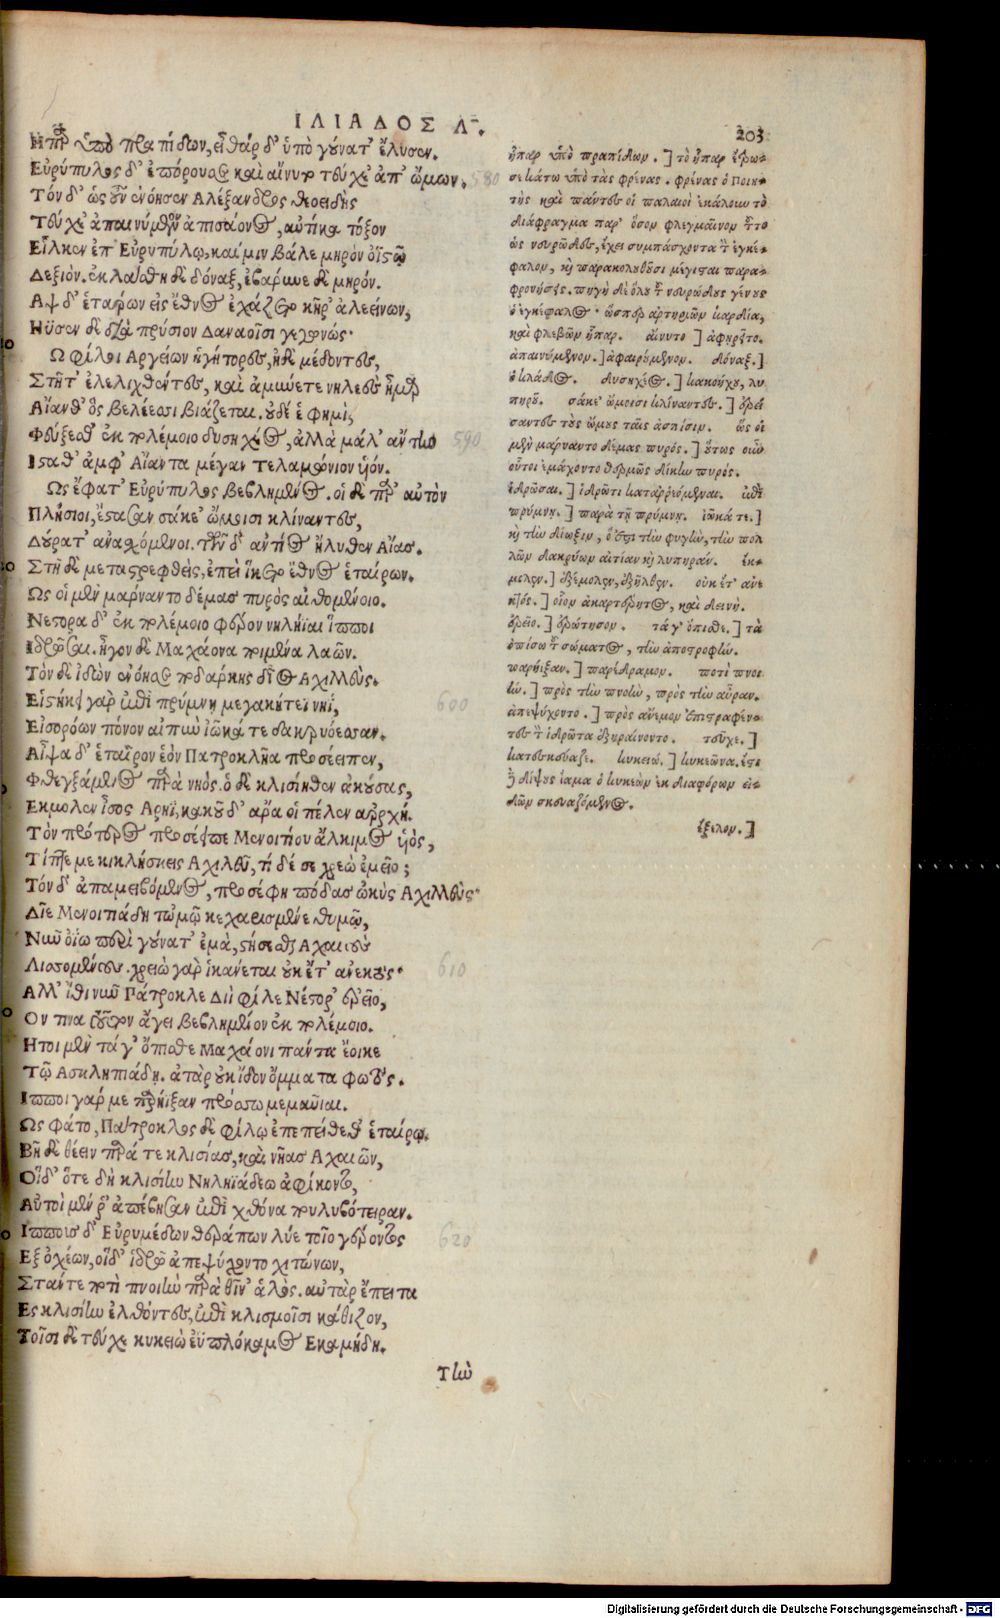 ΙΛΙΑΔΟΣ Λ.
203
Ηπαρ ὑπὸ πραπίδων, εἶθαρ δ' ὑπὸ γούνατ' ἔλυσεν.
Εὐρύπυλος δ' ἐπόρουσε καὶ αἴνυτο τεύχε' ἀπ' ὤμων. 580
Τὸν δ' ὡς οὖν ἐνόησεν Αλέξανδρος θεοειδὴς
Τεύχε' ἀπαινύμενον ἀπισάονος, αὐτίκα τόξον
Εἷλκεν ἐπ' Εὐρυπύλῳ, καί μιν βάλε μηρὸν ὀϊστῷ
Δεξιόν. ἐκλάσθη δὲ δόναξ, ἐβάρυνε δὲ μηρόν.
Αψ δ' ἑτάρων εἰς ἔθνος ἐχάζετο κῆρ' ἀλεείνων,
Ηϋσεν δὲ διαπρύσιον Δαναοῖσι γεγωνώς·
Ω φίλοι Αργείων ἡγήτορες, ἠδὲ μέδοντες,
Στῆτ' ἐλελιχθέντες, καὶ ἀμύνετε νηλεὲς ἦμαρ
Αἴανθ' ὃς βελέεσσι βιάζεται. οὐδέ ἑ φημὶ,
Φεύξεσθ' ἐκ πολέμοιο δυσηχέος, ἀλλὰ μάλ' ἄντην 590
Ιστασθ' ἀμφ' Αἴαντα μέγαν Τελαμώνιον υἱόν.
Ως ἔφατ' Εὐρύπυλος βεβλημένος. οἱ δὲ παρ' αὐτὸν
Πλησίοι, ἔστασαν σάκε' ὤμοισι κλίναντες,
Δούρατ' ἀνασχόμενοι. τῶν δ' ἀντίος ἤλυθεν Αἴας.
Στῆ δὲ μεταστρεφθεὶς, ἐπεὶ ἵκετο ἔθνος ἑταίρων.
Ως οἱ μὲν μάρναντο δέμας πυρὸς αἰθομένοιο.
Νέστορα δ' ἐκ πολέμοιο φέρον νηλήϊαι ἵπποι
Ιδρῶσαι. ἦγον δὲ Μαχάονα ποιμένα λαῶν.
Τὸν δὲ ἰδὼν ἐνόησε ποδάρκης δῖος Αχιλλεὺς.
Εἱστήκει γὰρ ἐπὶ πρύμνῃ μεγακήτεϊ νηῒ, 600
Εἰσορόων πόνον αἰπὺν ἰῶκά τε δακρυόεσσαν.
Αἶψα δ' ἑταῖρον ἑὸν Πατροκλῆα προσέειπεν,
Φθεγξάμενος παρὰ νηὸς. ὁ δὲ κλισίηθεν ἀκούσας,
Εκμολεν ἶσος Αρηϊ, κακοῦ δ' ἄρα οἱ πέλεν ἀρχή.
Τὸν πρότερος προσέειπε Μενοιτίου ἄλκιμος υἱὸς,
Τίπτε με κικλήσκεις Αχιλεῦ, τί δέ σε χρεὼ ἐμεῖο;
Τόν δ' ἀπαμειβόμενος, προσέφη πόδας ὠκὺς Αχιλλεὺς·
Δῖε Μενοιτιάδη τῷ μῷ κεχαρισμένε θυμῷ,
Νῦν ὀΐω περὶ γούνατ' ἐμὰ, στήσεσθαι Αχαιοὺς
Λισσομένους. χρειὼ γὰρ ἱκάνεται οὐκ ἔτ' ἀνεκτός· 610
Αλλ' ἴθι νῦν Πάτροκλε Διῒ φίλε Νέστορ' ἐρεῖο,
Ον τινα τοῦτον ἄγει βεβλημένον ἐκ πολέμοιο.
Ητοι μὲν τά γ' ὄπισθε Μαχάονι πάντα ἔοικε
Τῷ Ασκληπιάδῃ. ἀτὰρ οὐκ ἴδον ὄμματα φωτός.
Ιπποι γάρ με παρήϊξαν πρόσσω μεμαυῖαι.
Ως φάτο, Πάτροκλος δὲ φίλῳ ἐπεπείθεθ' ἑταίρῳ.
Βῆ δὲ θέειν παρά τε κλισίας, καὶ νῆας Αχαιῶν,
Οἵδ' ὅτε δὴ κλισίην Νηληϊάδεω ἀφίκοντο,
Αὐτοὶ μέν ῥ' ἀπέβησαν ἐπὶ χθόνα πουλυβότειραν.
Ιππους δ' Εὐρυμέδων θεράπων λύε τοῖο γέροντος 620
Εξ ὀχέων, οἵδ' ἱδρῶ ἀπεψύχοντο χιτώνων,
Στάντε ποτὶ πνοιὴν παρὰ θῖν' ἁλὸς. αὐτὰρ ἔπειτα
Ες κλισίην ἐλθόντες, ἐπὶ κλισμοῖσι κάθιζον,
Τοῖσι δὲ τεῦχε κυκειὼ ἐϋπλόκαμος Εκαμήδη.
Τὴν
ἧπαρ ὑπὸ πραπίδων. ] τὸ ἧπαρ ἔφω-
σε κάτω ὑπὸ τὰς φρένας. φρένας ὁ Ποιη-
τὴς καὶ πάντες οἱ παλαιοὶ ἐκάλουν τὸ
διάφραγμα παρ' ὅσον φλεγμαῖνον τοῦτο
ὡς νευρῶδες, ἔχει συμπάσχοντα τὸν ἐγκέ-
φαλον, καὶ παρακολουθοῦσι μέγισται παρα-
φρονήσεις. πηγὴ δὲ ὅλου τοῦ νευρώδους γένους
ὁ ἐγκέφαλος. ὥσπερ ἀρτηριῶν καρδία,
καὶ φλεβῶν ἧπαρ. αἴνυτο ] ἀφῃρεῖτο.
ἀπαινύμενον. ] ἀφαιρούμενον. δόναξ. ]
ὁ κλάδος. δυσηχέος. ] κακοήχου, λυ
πηροῦ. σάκε' ὤμοισι κλίναντες. ] ἐρεί
σαντες τοὺς ὤμους ταῖς ἀσπίσιν. ὡς οἱ
μὲν μάρναντο δέμας πυρός. ] οὕτως οὖν
οὗτοι ἐμάχοντο θερμῶς δίκην πυρός.
ἱδρῶσαι. ] ἱδρῶτι καταρρεόμεναι. ἐπὶ
πρύμνῃ. ] παρὰ τῇ πρύμνῃ. ἰῶκά τε. ]
καὶ τὴν δίωξιν, ὅ ἐστι τὴν φυγὴν, τὴν πολ
λῶν δακρύων αἰτίαν καὶ λυπηράν. ἔκ-
μολεν. ] ἐξέμολεν, ἐξῆλθεν. οὐκ ἔτ' ἀνε
κτός. ] οἷον ἀκαρτέρητος, καὶ δεινή.
ἐρεῖο. ] ἐρώτησον. τά γ' ὄπισθε. ] τὰ
ὀπίσω τοῦ σώματος, τὴν ἀποστροφήν.
παρήϊξαν. ] παρέδραμον. ποτὶ πνοι
ὴν. ] πρὸς τὴν πνοὴν, πρὸς τὴν αὔραν.
ἀπεψύχοντο. ] πρὸς ἄνεμον ἐπιστραφέν-
τες τὸν ἱδρῶτα ἐξηραίνοντο. τεῦχε. ]
κατεσκεύαζε. κυκειώ. ] κυκεῶνα. ἔστι
δὲ δίψους ἴαμα ὁ κυκεὼν ἐκ διαφόρων εἰ-
δῶν σκευαζόμενος.
ἔξελον. ]
Digitalisierung gefördert durch die Deutsche Forschungsgemeinschaft - DFG